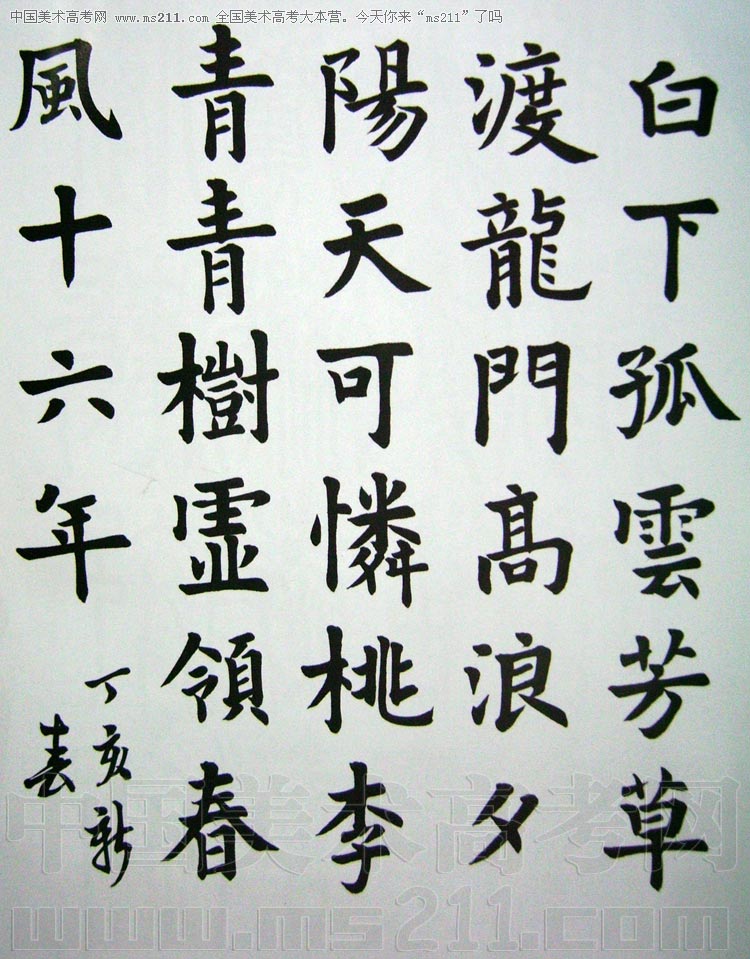 中国美术高考网 www.ms211.com 全国美术高考大本营。今天你来“ms211”了吗
白下孤雲芳草
渡龍門高浪夕
陽天可憐桃李
青青樹虛領春
風十六年
丁亥新
春
中国美术高考网
www.ms211.com